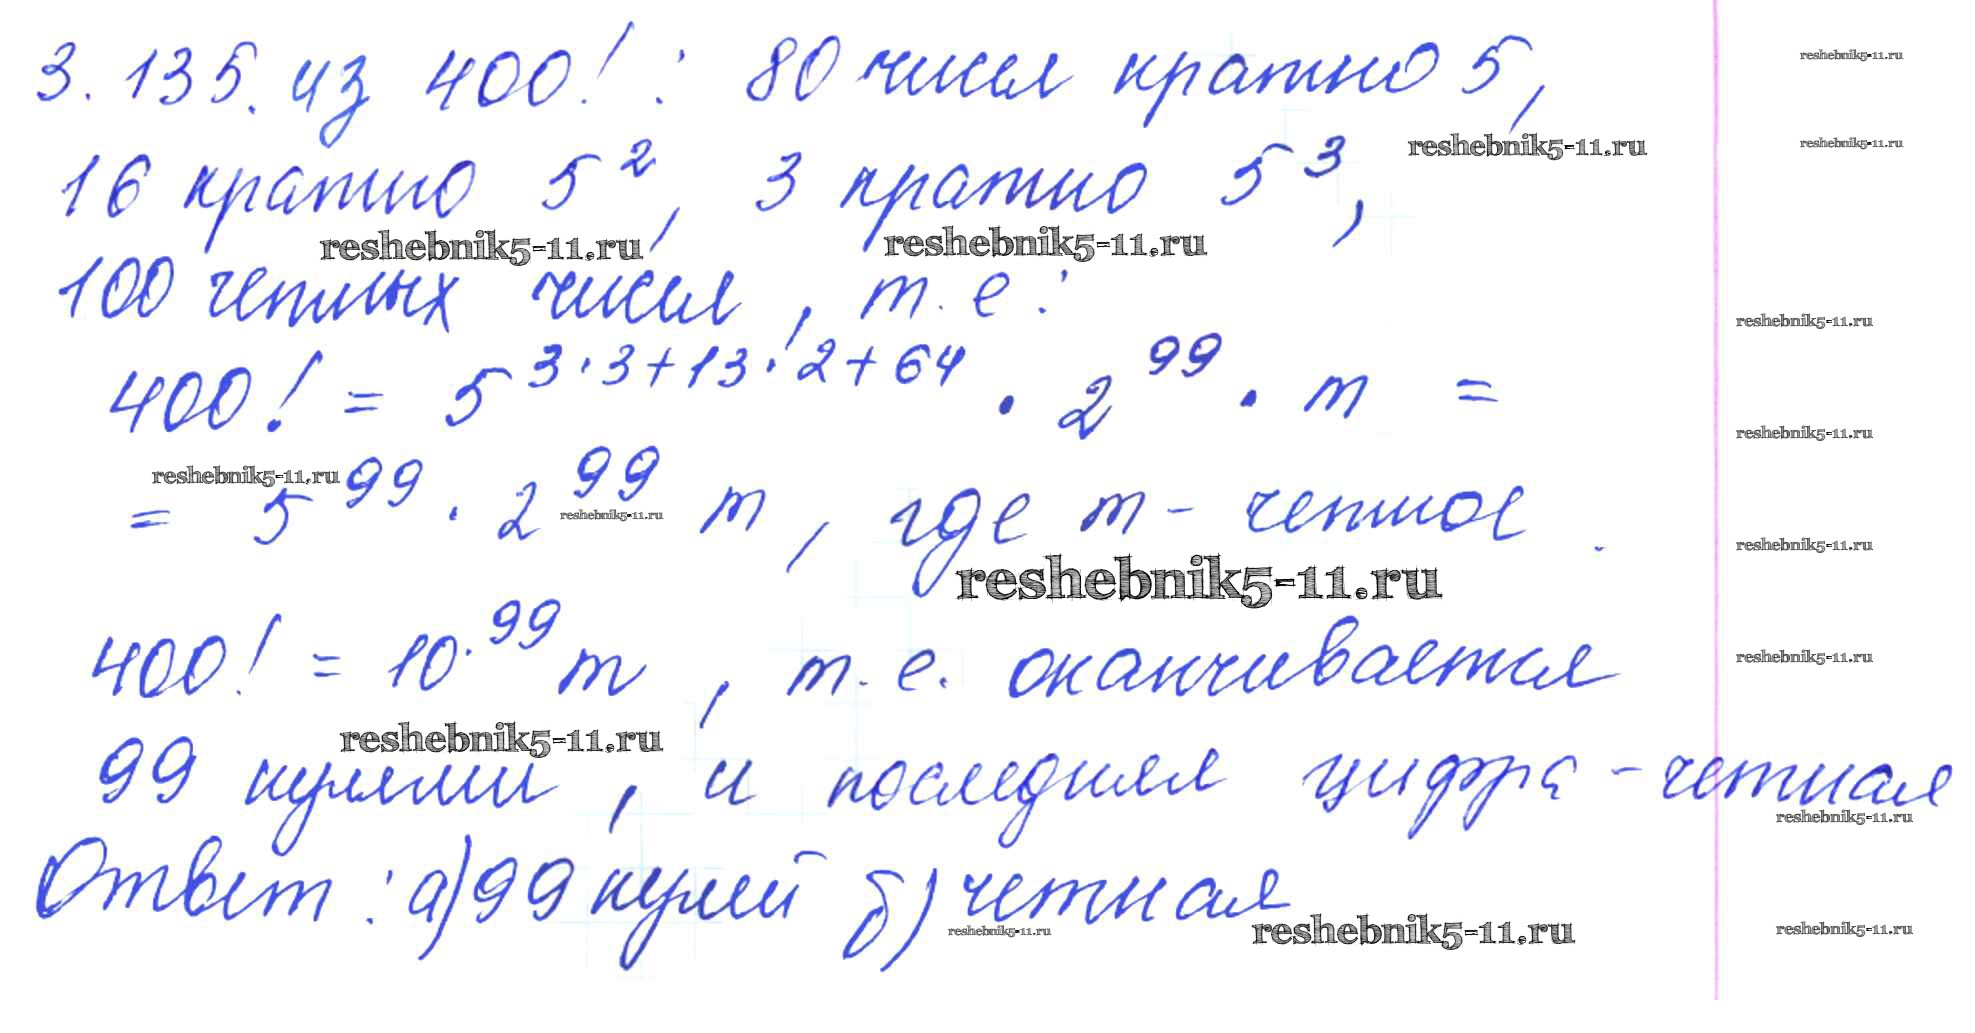 3.135. из 400! : 80 чисел кратно 5,
reshebnik5-11.ru
16 кратно 5², 3 кратно 5³,
reshebnik5-11.ru
reshebnik5-11.ru
reshebnik5-11.ru
reshebnik5-11.ru
100 четных чисел, т.е:
reshebnik5-11.ru
400! = 5^(3·3+13·2+64) · 2^99 · m =
reshebnik5-11.ru
reshebnik5-11.ru
= 5^99 · 2^99 m, где m - четное.
reshebnik5-11.ru
reshebnik5-11.ru
reshebnik5-11.ru
400! = 10^99 m, т.е. оканчивается
reshebnik5-11.ru
reshebnik5-11.ru
99 нулями, и последняя цифра - четная
reshebnik5-11.ru
Ответ: а) 99 нулей б) четная
reshebnik5-11.ru
reshebnik5-11.ru
reshebnik5-11.ru